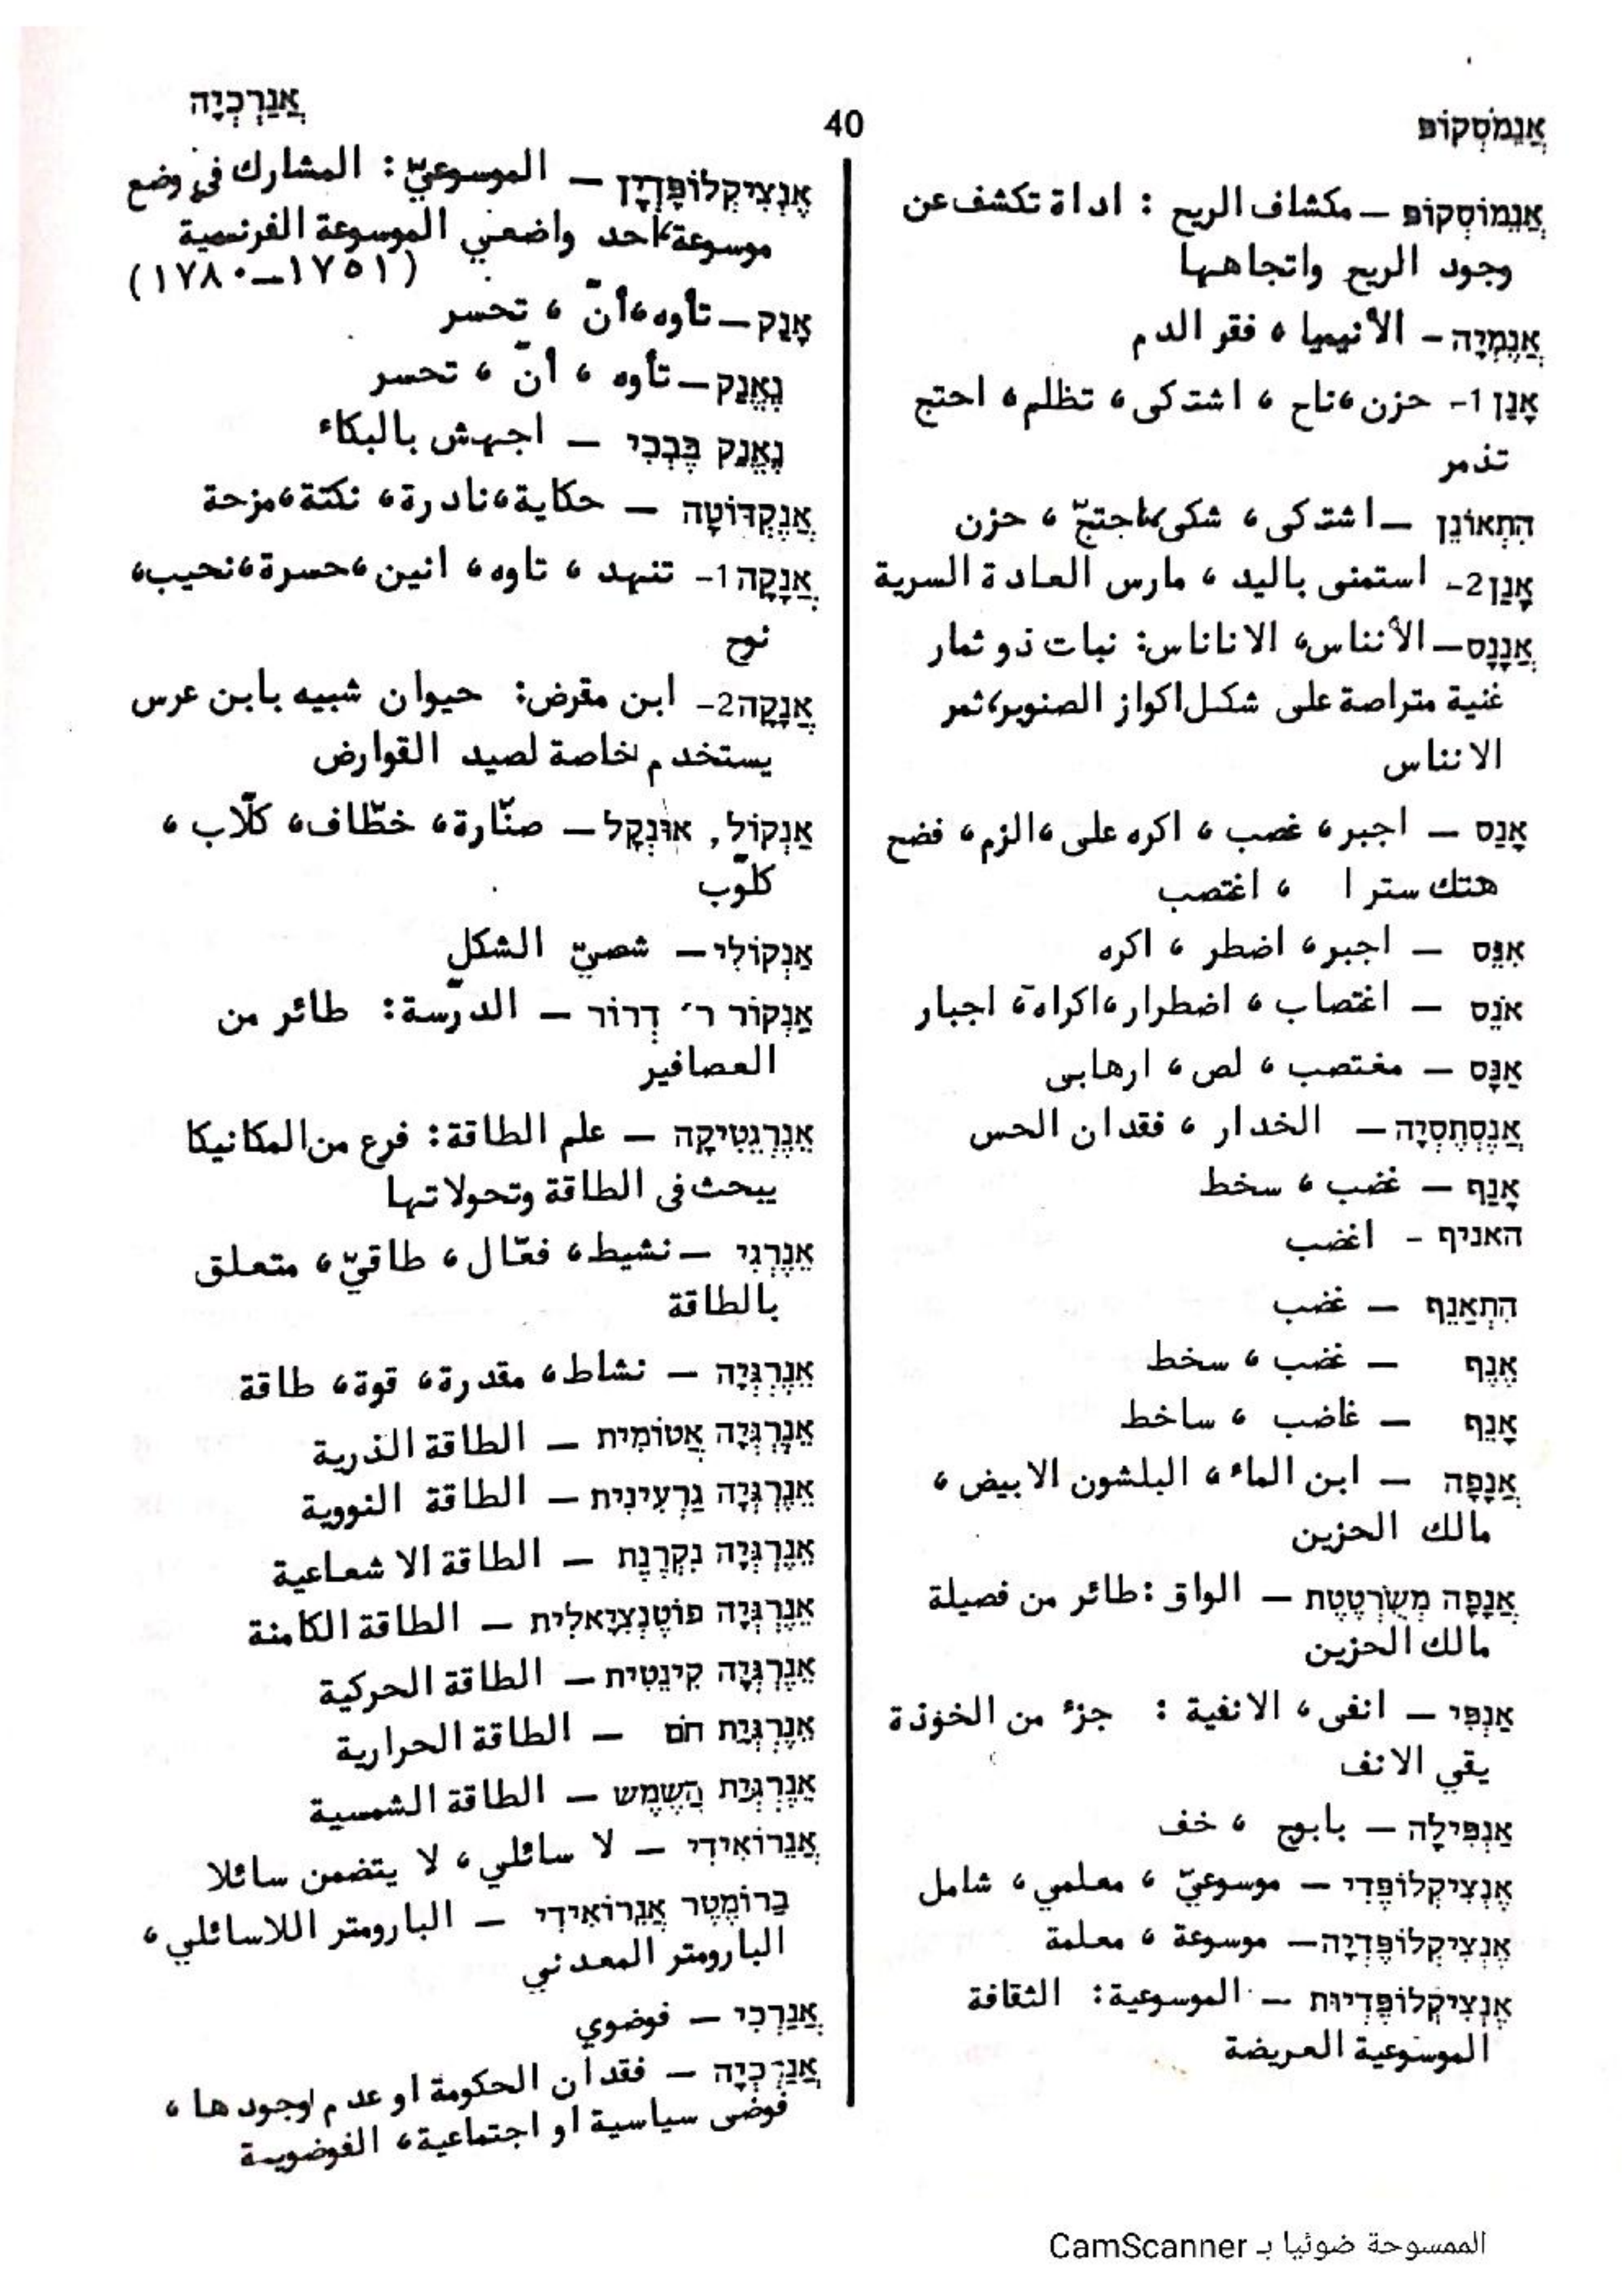 אֲנֵמֹסְקוֹפּ
40
אֲנַרְכְיָה
אֲנֵמוֹסְקוֹפּ – مكشاف الريح : اداة تكشف عن
وجود الريح واتجاهها
אֲנֶמְיָה – الأنيميا ، فقر الدم
אָנַן 1– حزن ،ناح ، اشتكى ، تظلم ، احتج
تذمر
הִתְאוֹנֵן – اشتكى ، شكى ،احتجّ ، حزن
אָנַן 2– استمنى باليد ، مارس العادة السرية
אֲנָנָס – الأنناس، الاناناس: نبات ذو ثمار
غنية متراصة على شكل اكواز الصنوبر،ثمر
الانناس
אָנַס – اجبر ، غصب ، اكره على ،الزم ، فضح
هتك سترا ، اغتصب
אִנֵּס – اجبر ، اضطر ، اكره
אֹנֶס – اغتصاب ، اضطرار ،اكراه ، اجبار
אַנָּס – مغتصب ، لص ، ارهابى
אֲנֶסְתֶסְיָה – الخدار ، فقدان الحس
אָנַף – غضب ، سخط
האניף – اغضب
הִתְאַנֵּף – غضب
אֶנֶף – غضب ، سخط
אָנֵף – غاضب ، ساخط
אֲנָפָה – ابن الماء ، البلشون الابيض ،
مالك الحزين
אֲנָפָה מְשֻׂרְטֶטֶת – الواق : طائر من فصيلة
مالك الحزين
אַנְפִּי – انفى ، الانفية : جزء من الخوذة
يقي الانف
אַנְפִּילָה – بابوج ، خف
אֶנְצִיקְלוֹפֶּדִי – موسوعيّ ، معلمي ، شامل
אֶנְצִיקְלוֹפֶּדְיָה – موسوعة ، معلمة
אֶנְצִיקְלוֹפֶּדְיוּת – الموسوعية: الثقافة
الموسوعية العريضة
אֶנְצִיקְלוֹפֶּדְיָן – الموسوعيّ : المشارك في وضع
موسوعة ،احد واضعي الموسوعة الفرنسية
(١٧٥١–١٧٨٠)
אָנַק – تأوه ،أنّ ، تحسر
נֶאֱנַק – تأوه ، أنّ ، تحسر
נֶאֱנַק בִּבְכִי – اجهش بالبكاء
אֲנֶקְדּוֹטָה – حكاية ،نادرة ، نكتة ،مزحة
אֲנָקָה 1– تنهد ، تاوه ، انين ،حسرة ،نحيب،
نوح
אֲנָקָה 2– ابن مقرض: حيوان شبيه بابن عرس
يستخدم خاصة لصيد القوارض
אַנְקוֹל, אוּנְקָל – صنّارة ، خطّاف ، كلّاب ،
كلّوب
אַנְקוֹלִי – شصيّ الشكل
אַנְקוֹר ר׳ דְרוֹר – الدرّسة: طائر من
العصافير
אֵנֶרְגֶּטִיקָה – علم الطاقة: فرع من المكانيكا
يبحث فى الطاقة وتحولاتها
אֵנֶרְגִּי – نشيط ، فعّال ، طاقيّ ، متعلق
بالطاقة
אֵנֶרְגְיָה – نشاط ، مقدرة ، قوة ، طاقة
אֵנֶרְגְיָה אֲטוֹמִית – الطاقة الذرية
אֵנֶרְגְיָה גַרְעִינִית – الطاقة النووية
אֵנֶרְגְיָה נִקְרֶנֶת – الطاقة الاشعاعية
אֵנֶרְגְיָה פוֹטֶנְצִיָאלִית – الطاقة الكامنة
אֵנֶרְגְיָה קִינֵטִית – الطاقة الحركية
אֵנֶרְגְיַת חֹם – الطاقة الحرارية
אֵנֶרְגְיַת הַשֶּׁמֶשׁ – الطاقة الشمسية
אֲנֵרוֹאִידִי – لا سائلي ، لا يتضمن سائلا
בָּרוֹמֶטֶר אֲנֵרוֹאִידִי – البارومتر اللاسائلي ،
البارومتر المعدني
אֲנַרְכִי – فوضوي
אֲנַרְכְיָה – فقدان الحكومة او عدم وجودها ،
فوضى سياسية او اجتماعية ، الفوضوية
الممسوحة ضوئيا بـ CamScanner